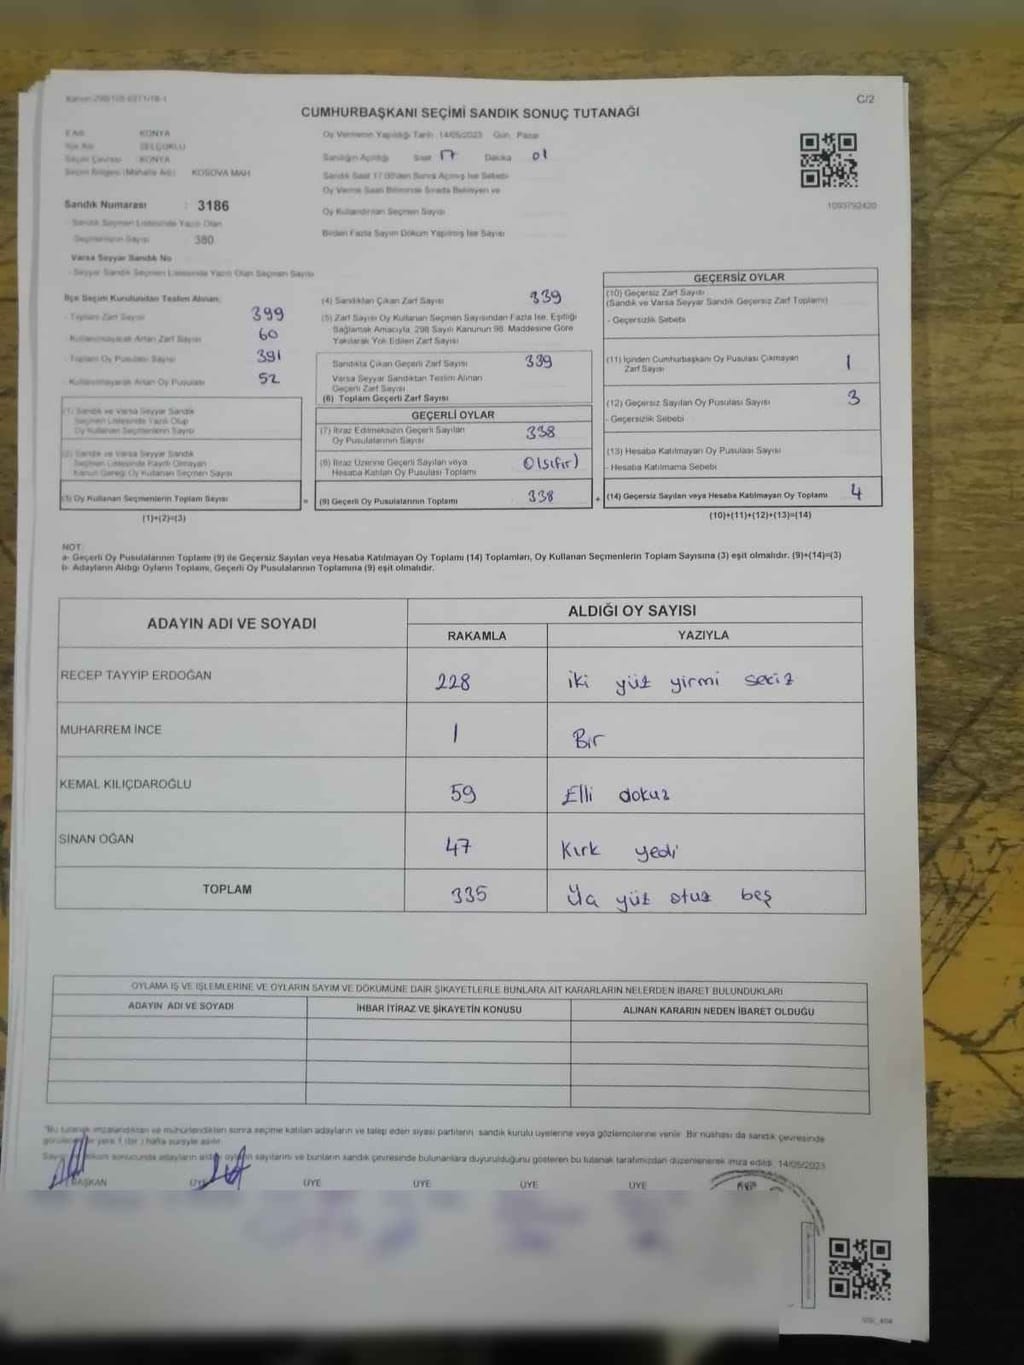 C/2
CUMHURBAŞKANI SEÇİMİ SANDIK SONUÇ TUTANAĞI
İl Adı KONYA
İlçe Adı SELÇUKLU
Seçim Çevresi KONYA
Seçim Bölgesi (Mahalle Adı) KOSOVA MAH
Sandık Numarası : 3186
Sandık Seçmen Listesinde Yazılı Olan
Seçmenlerin Sayısı 380
Varsa Seyyar Sandık No
- Seyyar Sandık Seçmen Listesinde Yazılı Olan Seçmen Sayısı
Oy Vermenin Yapıldığı Tarih : 14/05/2023 Gün : Pazar
Sandığın Açıldığı Saat 17 Dakika 01
Sandık Saat 17:00'den Sonra Açılmış İse Sebebi
Oy Verme Saati Bitiminde Sırada Bekleyen ve
Oy Kullandırılan Seçmen Sayısı
Birden Fazla Sayım Döküm Yapılmış İse Sayısı
1093792420
İlçe Seçim Kurulundan Teslim Alınan:
- Toplam Zarf Sayısı 399
- Kullanılmayarak Artan Zarf Sayısı 60
- Toplam Oy Pusulası Sayısı 391
- Kullanılmayarak Artan Oy Pusulası 52
(1) Sandık ve Varsa Seyyar Sandık
Seçmen Listesinde Yazılı Olup
Oy Kullanan Seçmenlerin Sayısı
(2) Sandık ve Varsa Seyyar Sandık
Seçmen Listesinde Kayıtlı Olmayan
Kanun Gereği Oy Kullanan Seçmen Sayısı
(3) Oy Kullanan Seçmenlerin Toplam Sayısı
(1)+(2)=(3)
(4) Sandıktan Çıkan Zarf Sayısı 339
(5) Zarf Sayısı Oy Kullanan Seçmen Sayısından Fazla İse, Eşitliği
Sağlamak Amacıyla, 298 Sayılı Kanunun 98. Maddesine Göre
Yakılarak Yok Edilen Zarf Sayısı
Sandıkta Çıkan Geçerli Zarf Sayısı 339
Varsa Seyyar Sandıktan Teslim Alınan
Geçerli Zarf Sayısı
(6) Toplam Geçerli Zarf Sayısı
GEÇERLİ OYLAR
(7) İtiraz Edilmeksizin Geçerli Sayılan
Oy Pusulalarının Sayısı 338
(8) İtiraz Üzerine Geçerli Sayılan veya
Hesaba Katılan Oy Pusulası Toplamı 0(sıfır)
= (9) Geçerli Oy Pusulalarının Toplamı 338
GEÇERSİZ OYLAR
(10) Geçersiz Zarf Sayısı
(Sandık ve Varsa Seyyar Sandık Geçersiz Zarf Toplamı)
- Geçersizlik Sebebi
(11) İçinden Cumhurbaşkanı Oy Pusulası Çıkmayan
Zarf Sayısı 1
(12) Geçersiz Sayılan Oy Pusulası Sayısı 3
- Geçersizlik Sebebi
(13) Hesaba Katılmayan Oy Pusulası Sayısı
- Hesaba Katılmama Sebebi
+ (14) Geçersiz Sayılan veya Hesaba Katılmayan Oy Toplamı 4
(10)+(11)+(12)+(13)=(14)
NOT:
a- Geçerli Oy Pusulalarının Toplamı (9) ile Geçersiz Sayılan veya Hesaba Katılmayan Oy Toplamı (14) Toplamları, Oy Kullanan Seçmenlerin Toplam Sayısına (3) eşit olmalıdır. (9)+(14)=(3)
b- Adayların Aldığı Oyların Toplamı, Geçerli Oy Pusulalarının Toplamına (9) eşit olmalıdır.
ADAYIN ADI VE SOYADI
ALDIĞI OY SAYISI
RAKAMLA YAZIYLA
RECEP TAYYİP ERDOĞAN 228 iki yüz yirmi sekiz
MUHARREM İNCE 1 Bir
KEMAL KILIÇDAROĞLU 59 Elli dokuz
SİNAN OĞAN 47 Kırk yedi
TOPLAM 335 yüz otuz beş
OYLAMA İŞ VE İŞLEMLERİNE VE OYLARIN SAYIM VE DÖKÜMÜNE DAİR ŞİKAYETLERLE BUNLARA AİT KARARLARIN NELERDEN İBARET BULUNDUKLARI
ADAYIN ADI VE SOYADI İHBAR İTİRAZ VE ŞİKAYETİN KONUSU ALINAN KARARIN NEDEN İBARET OLDUĞU
"Bu tutanak imzalandıktan ve mühürlendikten sonra seçime katılan adayların ve talep eden siyasi partilerin, sandık kurulu üyelerine veya gözlemcilerine verilir. Bir nüshası da sandık çevresinde
görülebilir yere 1 (bir) hafta süreyle asılır.
Sayım Döküm sonucunda adayların aldığı oyların sayılarını ve bunların sandık çevresinde bulunanlara duyurulduğunu gösteren bu tutanak tarafımızdan düzenlenerek imza edildi. 14/05/2023
BAŞKAN ÜYE ÜYE ÜYE ÜYE ÜYE